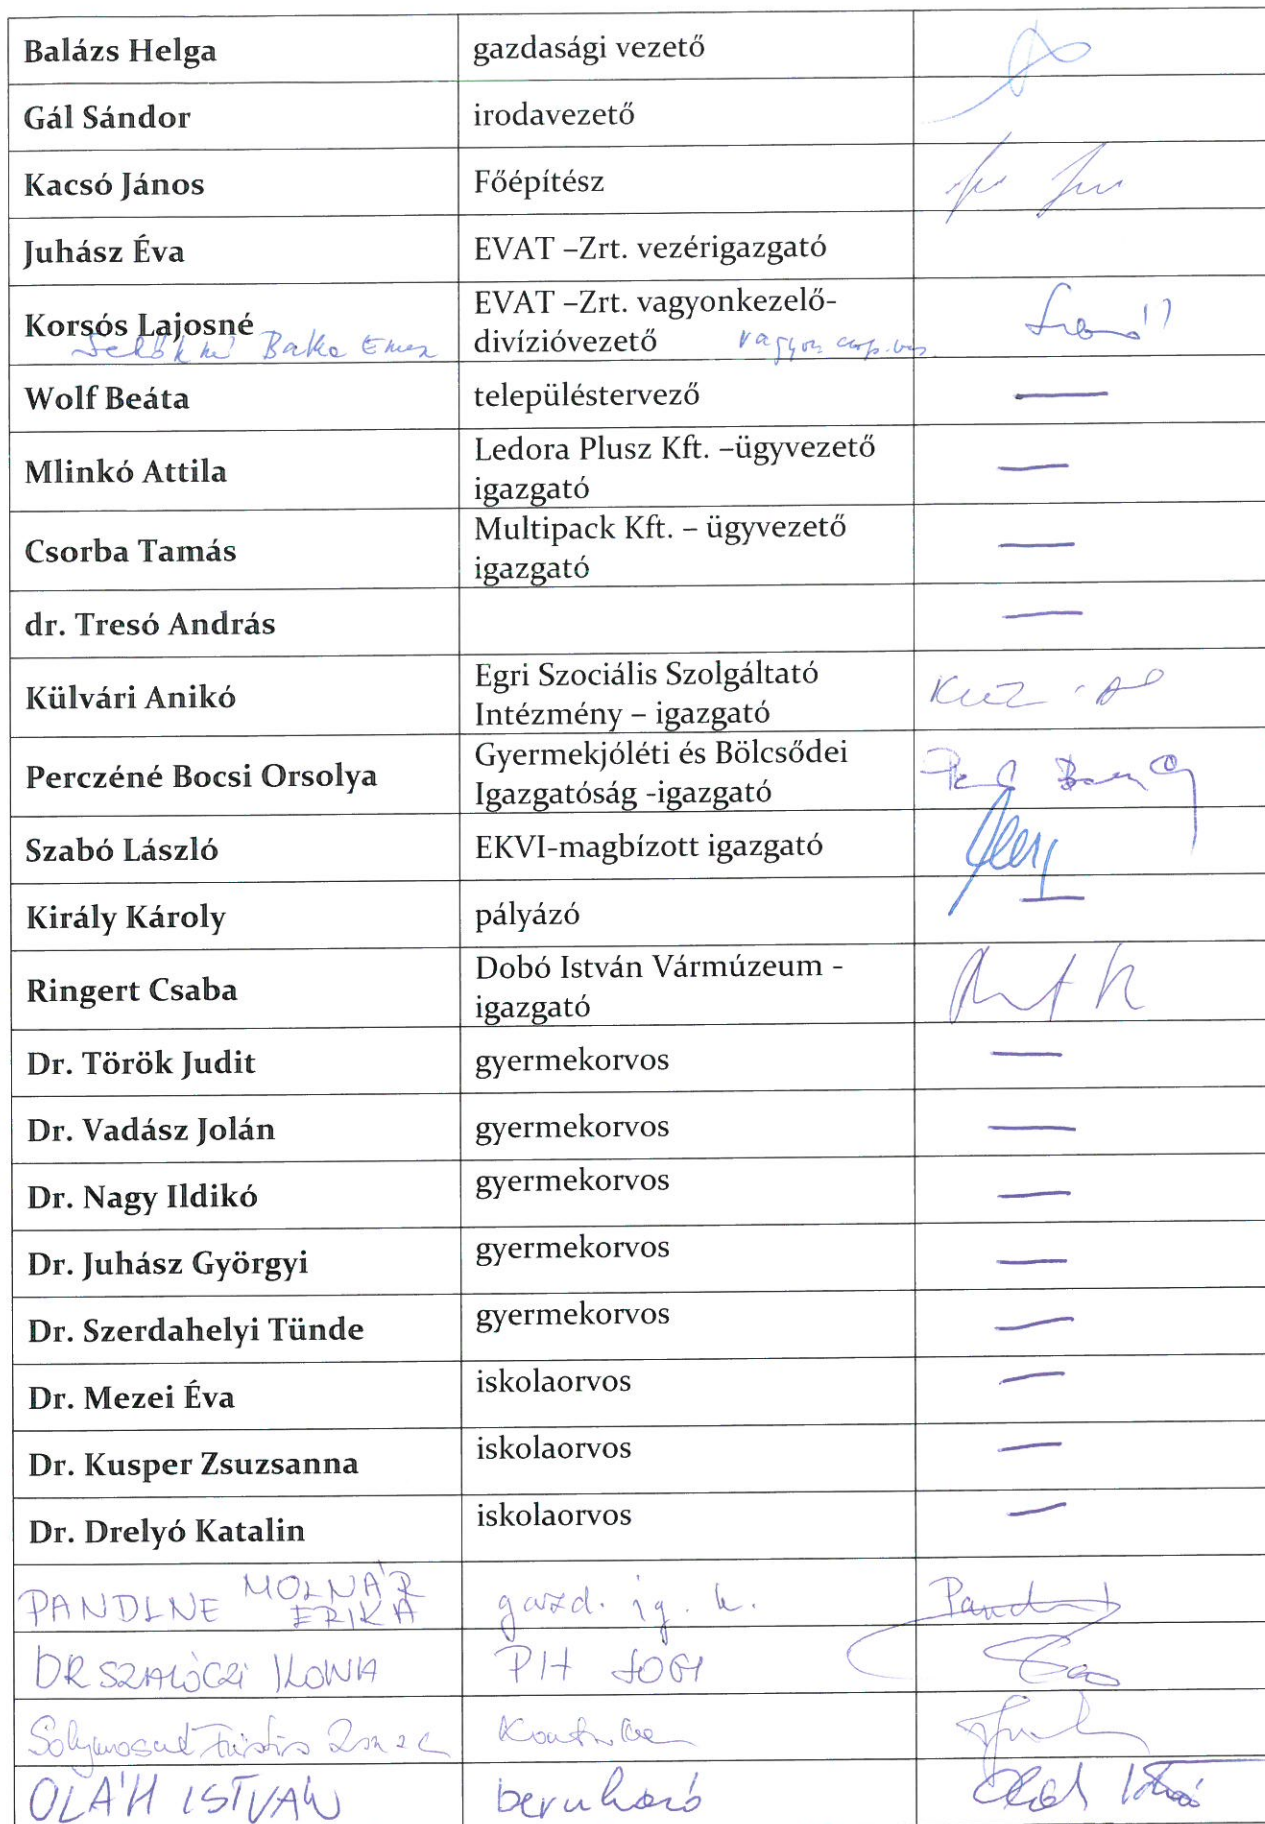 Balázs Helga gazdasági vezető
Gál Sándor irodavezető
Kacsó János Főépítész
Juhász Éva EVAT –Zrt. vezérigazgató
Korsós Lajosné EVAT –Zrt. vagyonkezelő-
divízióvezető
Baka
Wolf Beáta településtervező
Mlinkó Attila Ledora Plusz Kft. –ügyvezető
igazgató
Csorba Tamás Multipack Kft. – ügyvezető
igazgató
dr. Tresó András
Külvári Anikó Egri Szociális Szolgáltató
Intézmény – igazgató
Perczéné Bocsi Orsolya Gyermekjóléti és Bölcsődei
Igazgatóság -igazgató
Szabó László EKVI-magbízott igazgató
Király Károly pályázó
Ringert Csaba Dobó István Vármúzeum -
igazgató
Dr. Török Judit gyermekorvos
Dr. Vadász Jolán gyermekorvos
Dr. Nagy Ildikó gyermekorvos
Dr. Juhász Györgyi gyermekorvos
Dr. Szerdahelyi Tünde gyermekorvos
Dr. Mezei Éva iskolaorvos
Dr. Kusper Zsuzsanna iskolaorvos
Dr. Drelyó Katalin iskolaorvos
PANDINE MOLNÁR ERIKA gazd. ig. h.
DR SZALÓCZI ILONA PH JOGI
OLÁH ISTVÁN beruházó Oláh István